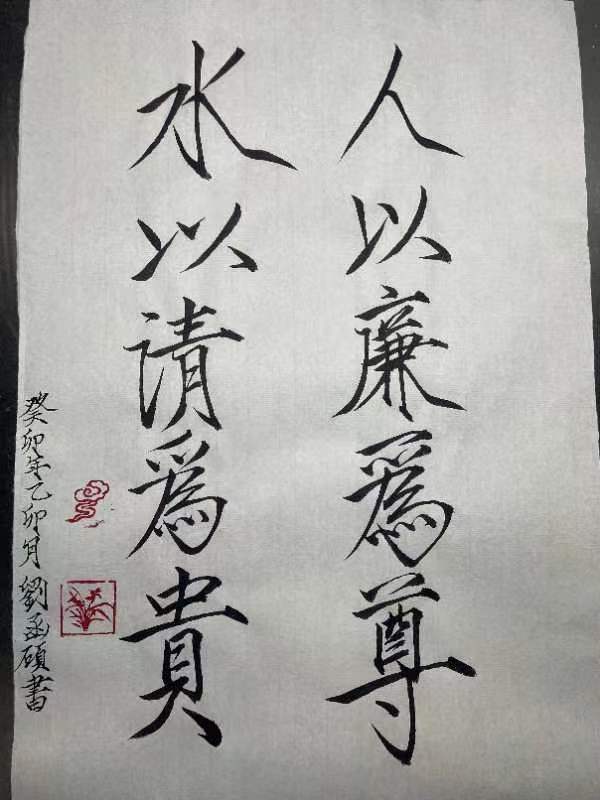 人以廉爲尊
水以請爲貴
癸卯年乙卯月劉函碩書